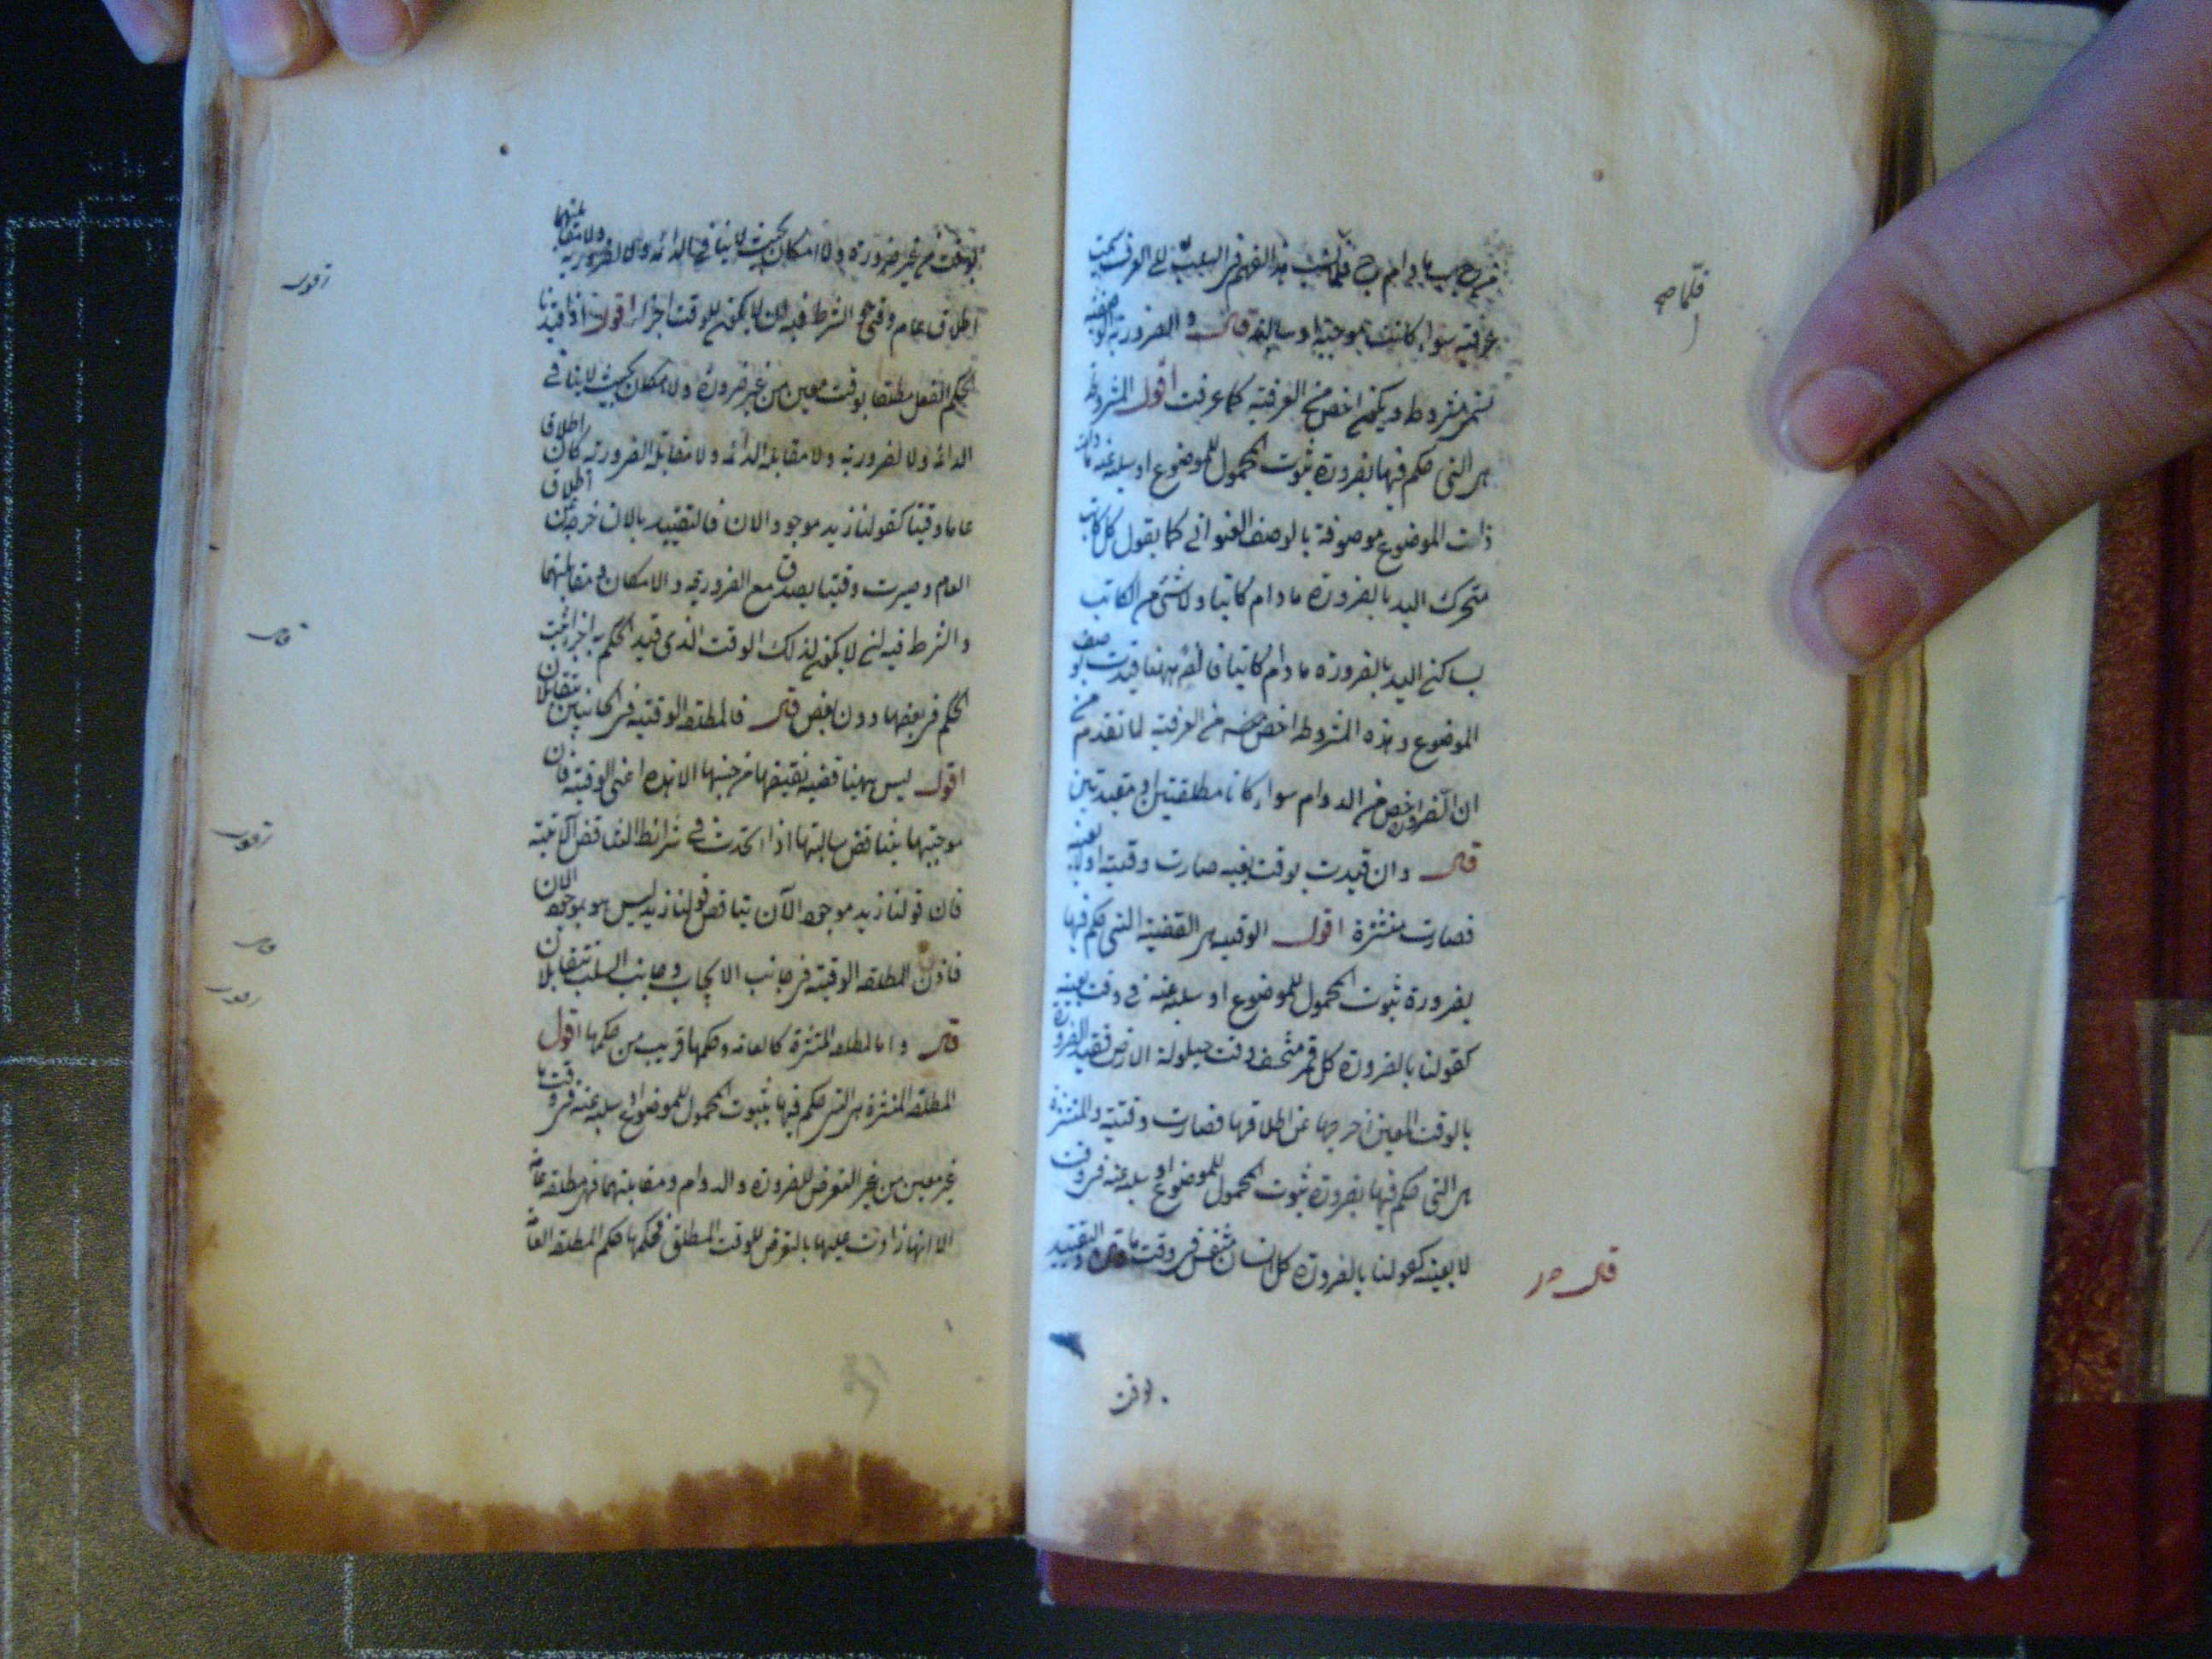 من ج ب ما دام ج فلما نسب هذا الفهم في السلب الى العرف سميت
عرفية سواء كانت موجبة او سالبة قال والضرورية الوصفية
تسمى مشروطة ويكون اخص من العرفية كما عرفت اقول المشروطة
هي التي حكم فيها بضرورة ثبوت المحمول للموضوع او سلبه عنه ما دامت
ذات الموضوع موصوفة بالوصف العنواني كما يقول كل كاتب
متحرك اليد بالضرورة ما دام كاتبا ولا شئ من الكاتب
بساكن اليد بالضرورة ما دام كاتبا ههنا قيدت بوصف
الموضوع وهذه المشروطة اخص من العرفية لما تقدم من
ان الضرورة اخص من الدوام سواء كانا مطلقتين او مقيدتين
قال وان قيدت بوقت بعينه صارت وقتية اولا بعينه
فصارت منتشرة اقول الوقتية هي القضية التي حكم فيها
بضرورة ثبوت المحمول للموضوع او سلبه عنه في وقت بعينه
كقولنا بالضرورة كل قمر منخسف وقت حيلولة الارض فقيد الضرورة
بالوقت المعين اخرجها عن اطلاقها فصارت وقتية والمنتشرة
هي التي حكم فيها بضرورة ثبوت المحمول للموضوع او سلبه عنه في وقت
لا بعينه كقولنا بالضرورة كل انسان متنفس في وقت ما قال والتقييد
بوقت
قلما صح
قال صر
بوقت من غير ضرورة ولا امكان بحيث لا ينافي الدائمة ولا الضرورية ولا مقابلتهما
اطلاق عام وقتي والشرط فيه ان لا يكون للوقت اجزاء اقول اذا قيدنا
الحكم الفعل مطلقا بوقت معين من غير ضرورة ولا امكان بحيث لا ينافي
الدائمة ولا الضرورية ولا مقابلة الدائمة ولا مقابلة الضرورية كان اطلاق
عاما وقتيا كقولنا زيد موجود الان فالتقييد بالان خرج عن اطلاق
العام وصيرت وقتيا يصدق مع الضرورية والامكان ومقابلتهما
والشرط فيه ان لا يكون لذلك الوقت الذي قيد الحكم به اجزاء يثبت
الحكم في بعضها دون بعض قال فالمطلقة الوقتية في الجانبين يتقابلان
اقول ليس ههنا قضية نقيضها من جنسها الا هذه اعنى الوقتية فان
موجبتها يناقض سالبتها اذا اتحدت في شرائط التناقض الاتية
فان قولنا زيد موجود الآن يناقض قولنا زيد ليس هو بموجود الان
فاذن المطلقة الوقتية في جانب الايجاب وجانب السلب يتقابلان
قال واما المطلقة المنتشرة كالعامة وحكمها قريب من حكمها اقول
المطلقة المنتشرة هي التي حكم فيها بثبوت المحمول للموضوع او سلبه عنه في وقت ما
غير معين من غير التعرض للضرورة والدوام ومقابلتهما فهي مطلقة عامة
الا انها زادت عليها بالتعرض للوقت المطلق فحكمها حكم المطلقة العامة
اقول
قال
اقول
قال
اقول